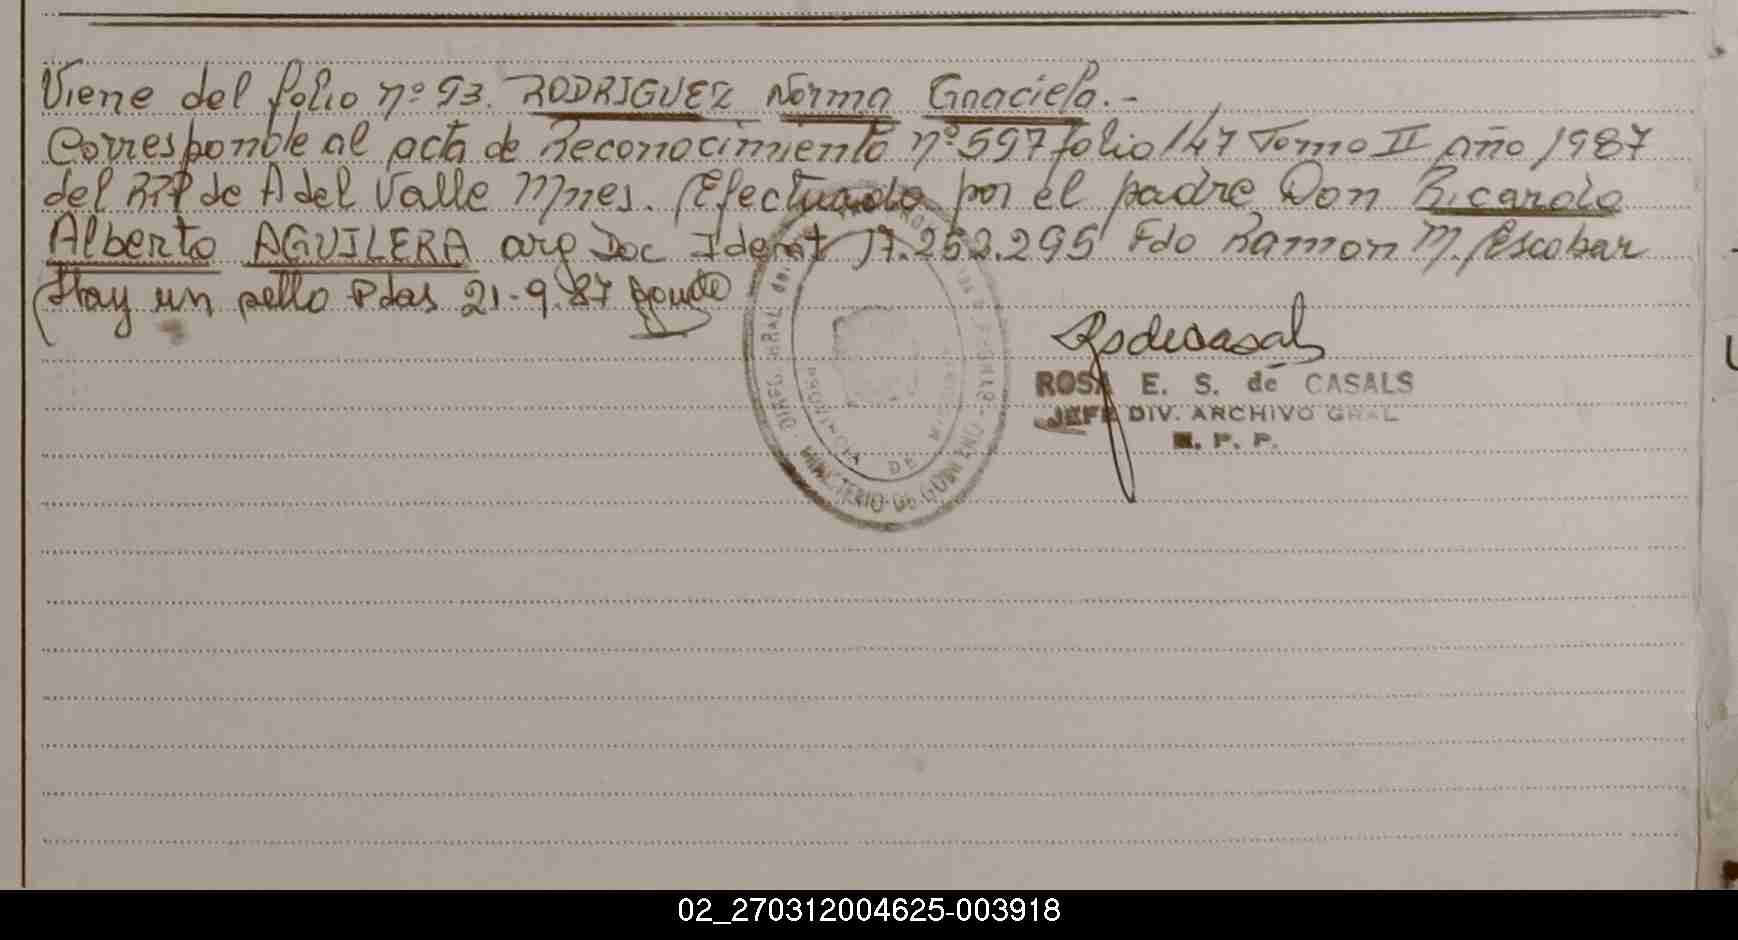 Viene del folio nº 93. RODRIGUEZ Norma Graciela.-
Corresponde al acta de Reconocimiento nº 597 folio 147 Tomo II Año 1987
del RPP de A del Valle Mnes. Efectuado por el padre Don Ricardo
Alberto AGUILERA arg Doc Ident 17.252.295 Fdo Ramon M. Escobar
Hay un sello Pdas 21-9-87
ROSA E. S. de CASALS
JEFE DIV. ARCHIVO GRAL
R. P. P.
MINISTERIO DE GOBIERNO
PROVINCIA DE MISIONES
02_270312004625-003918